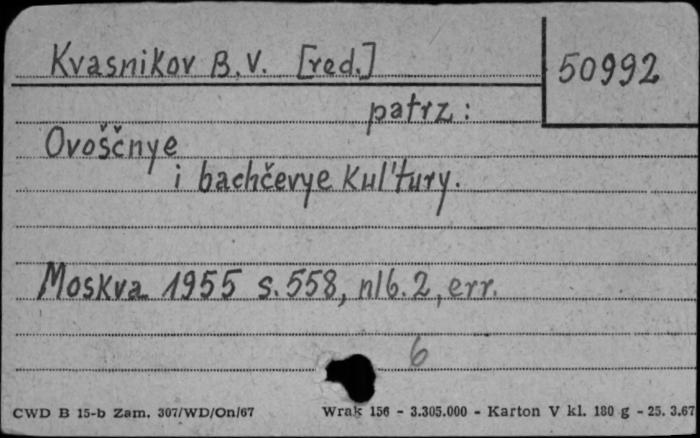 Kvasnikov B.V. [red.]
50992
patrz:
Ovoščnye
i bachčevye kul'tury.
Moskva 1955 s.558, nlb.2, err.
6
CWD B 15-b Zam. 307/WD/On/67 Wrak 156 - 3.305.000 - Karton V kl. 180 g - 25. 3.67